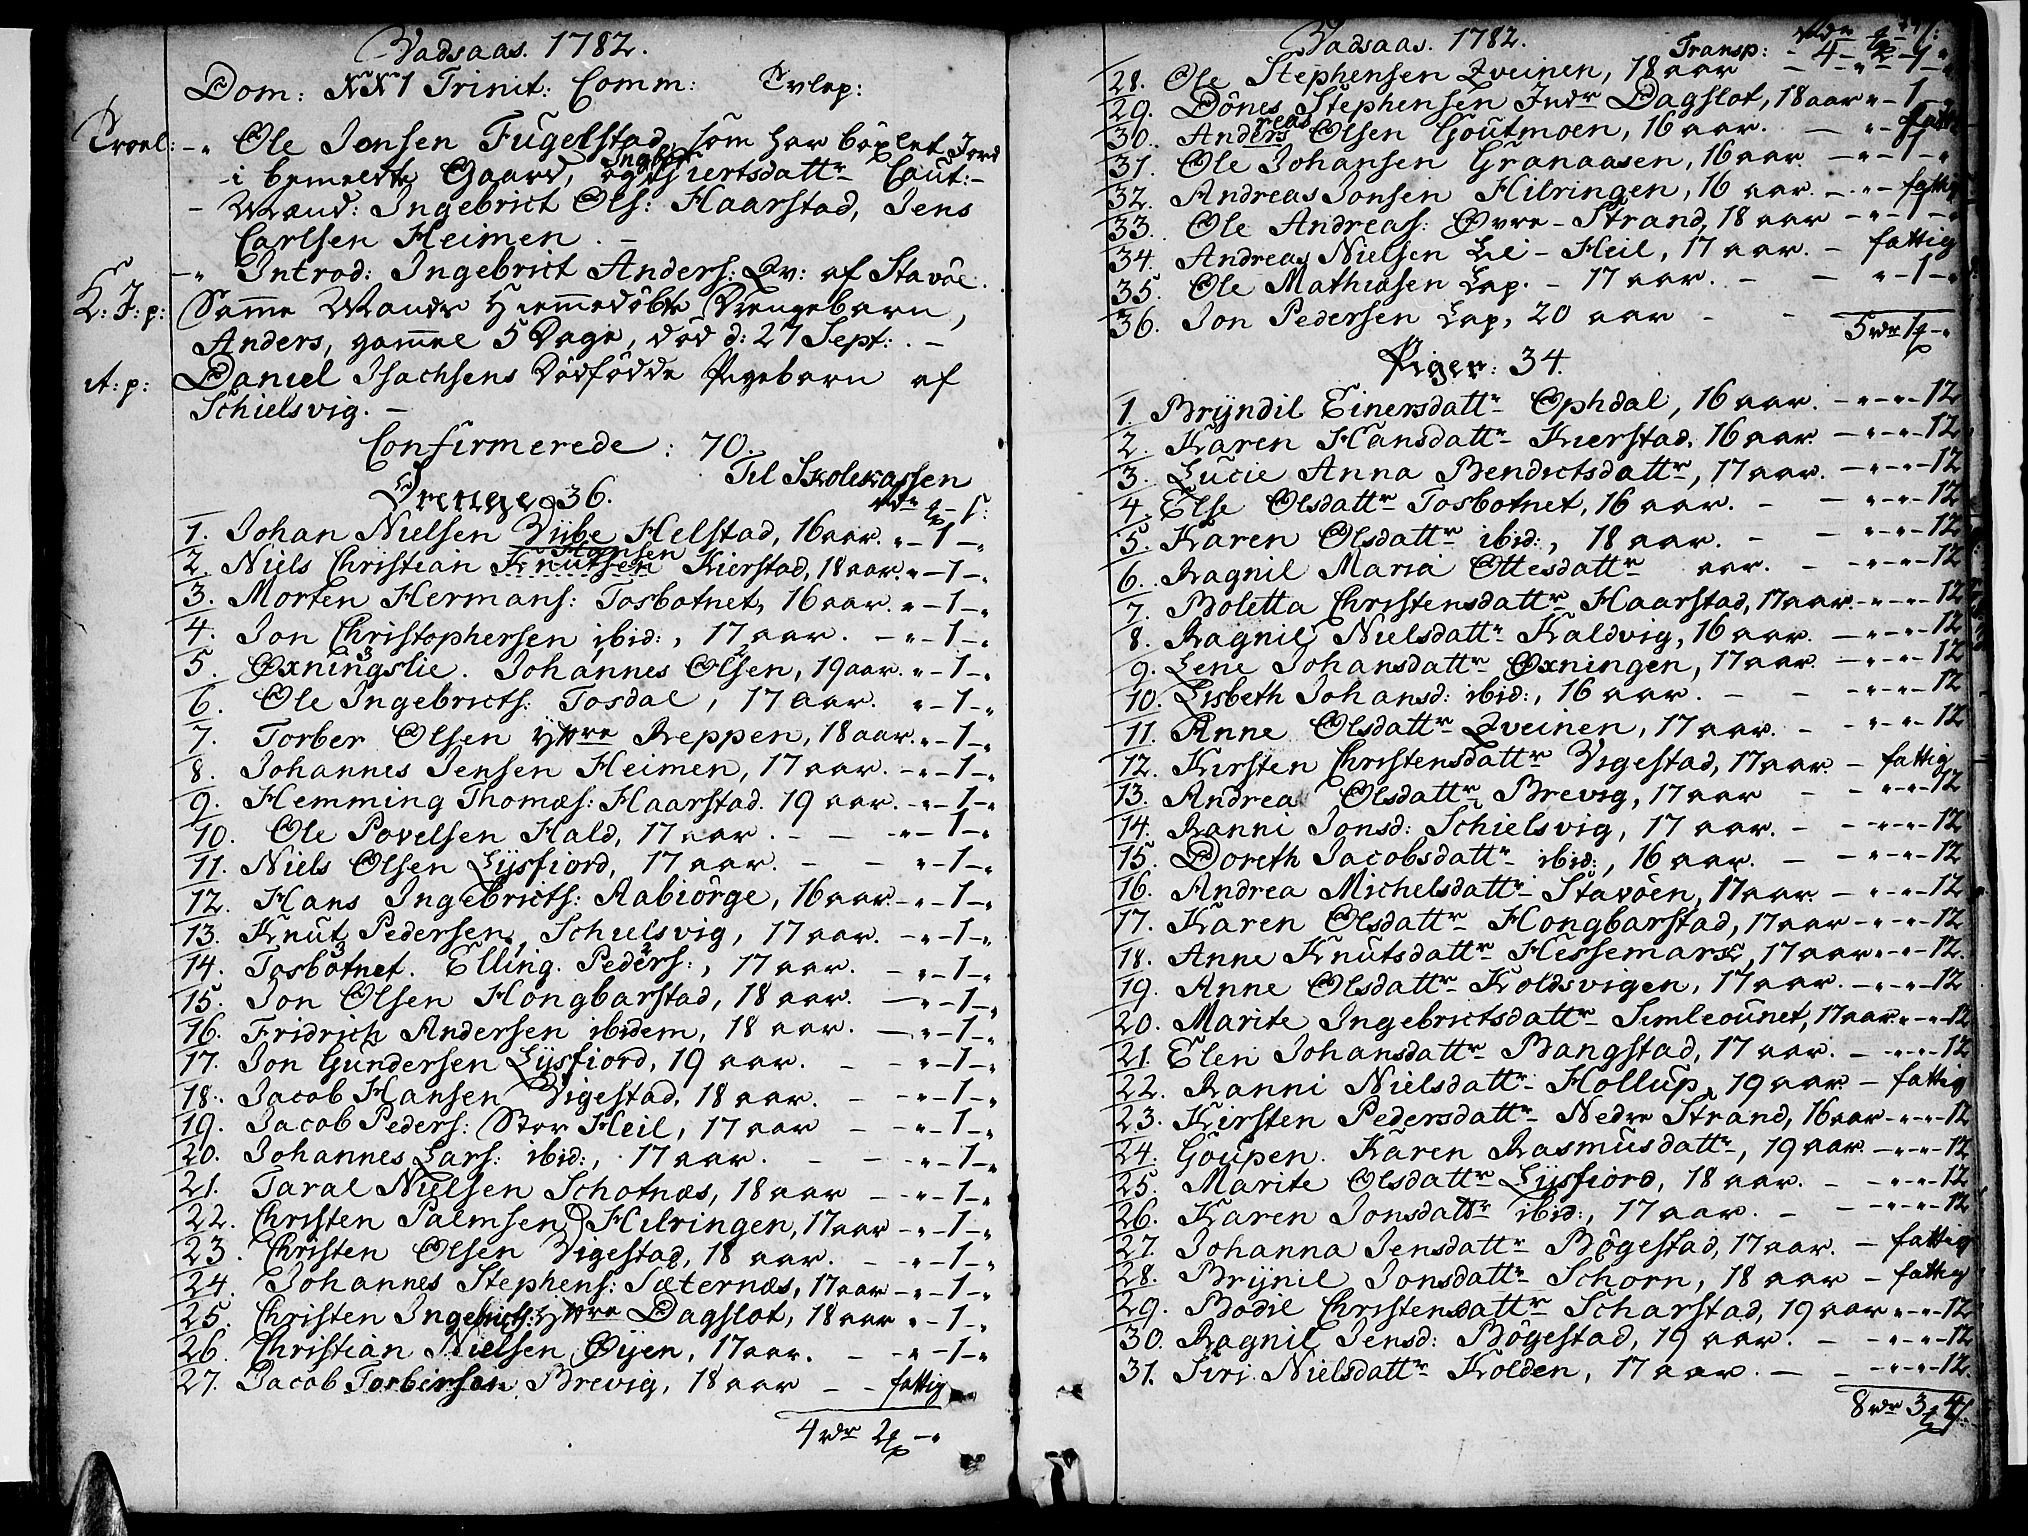 Vadsaas. 1782.
Dom: XXI Trinit: Comm:
Troel: Ole Jensen Fugelstad, som har böxlet Jord
i bemeldte Gaard, og Ingbor Siertsdattr Caut:
Mænd: Ingebrict Ols: Haarstad, Jens
Carlsen Heimen.
Introd: Ingebrict Anders: Qv: af Stavöe.
K: J: p: Samme Mands Hiemmedöbte Drengebarn,
Anders, gammel 5 Dage, död d: 27 Sept:
A: p: Daniel Isachsens Dödfödde Pigebarn af
Schielsvig.
Confirmerede: 70.
Til Skolekassen
Drenge 36.
1. Johan Nielsen Vibe Helstad, 16 aar. " - 1 - "
2. Niels Christian Knutsen Hansen Kierstad, 18 aar. " - 1 - "
3. Morten Hermans: Tosbotnet, 16 aar. " - 1 - "
4. Jon Christophersen ibid:, 17 aar. - " - 1 - "
5. Øxningslie. Johannes Olsen, 19 aar. " - 1 - "
6. Ole Ingebricts: Tosdal, 17 aar. " - 1 - "
7. Torber Olsen Yttre Reppen, 18 aar. " - 1 - "
8. Johannes Jensen Heimen, 17 aar. - " - 1 - "
9. Hemming Thomæs: Haarstad. 19 aar. - " - 1 - "
10. Ole Povelsen Hald, 17 aar. - - " - 1 - "
11. Niels Olsen Lysfiord, 17 aar. - - " - 1 - "
12. Hans Ingebricts: Aabiörge, 16 aar. - " - 1 - "
13. Knut Pedersen, Schielsvig, 17 aar. - " - 1 - "
14. Tosbotnet. Elling Peders:, 17 aar. - " - 1 - "
15. Jon Olsen Hongbarstad, 18 aar. - " - 1 - "
16. Fridrich Andersen ibidem, 18 aar. - " - 1 - "
17. Jon Gundersen Lysfiord, 19 aar. - - " - 1 - "
18. Jacob Hansen Vigestad, 18 aar. - - " - 1 - "
19. Jacob Peders: Stor Heil, 17 aar - - " - 1 - "
20. Johannes Lars: ibid:, 17 aar. - - " - 1 - "
21. Taral Nielsen Schotnæs, 18 aar - - " - 1 - "
22. Christen Palmsen Hilringen, 17 aar - " - 1 - "
23. Christen Olsen Vigestad, 18 aar. - - " - 1 - "
24. Johannes Stephens: Sæternæs, 17 aar - " - 1 - "
25. Christen Ingebricts: Yttre Dagslot, 18 aar " - 1 - "
26. Christian Nielsen Øyen, 17 aar. - - " - 1 - "
27. Jacob Torbersen Brevig, 18 aar - - fattig
4 rdr 2 - "
Vadsaas. 1782.
Transp: - 4 - 2 - "
28. Ole Stephensen Qveinen, 18 aar - - " - 1 - "
29. Dönes Stephensen Indr Dagslot, 18 aar " - 1 - "
30. Anders reas Olsen Goutmoen, 16 aar. - "
31. Ole Johansen Granaasen, 16 aar - " - 1 - "
32. Andreas Jonsen Hilringen, 16 aar. - " - fattig
33. Ole Andreas: Øvre-Strand, 18 aar - " - 1 - "
34. Andreas Nielsen Li-Heil, 17 aar. - fattig
35. Ole Mathiasen Lap. - 17 aar. - - " - 1 - "
36. Jon Pedersen Lap, 20 aar - -
5 rdr 1 - "
Piger: 34.
1. Bryndil Einersdattr Ophdal, 16 aar. - " - " - 12
2. Karen Hansdattr Kierstad, 16 aar. - " - " - 12
3. Lucie Anna Bendictsdattr, 17 aar. - " - " - 12
4. Else Olsdattr Tosbotnet, 16 aar. - - " - " - 12
5. Karen Olsdattr ibid:, 18 aar. - - " - " - 12
6. Ragnil Maria Ottesdattr aar. - - " - " - 12
7. Boletta Christensdattr Haarstad, 17 aar - " - " - 12
8. Ragnil Nielsdattr Kaldvig, 16 aar. - " - " - 12
9. Lene Johansdattr Øxningen, 17 aar. - " - " - 12
10. Lisbeth Johansd: ibid:, 16 aar. - - " - " - 12
11. Anne Olsdattr Qveinen, 17 aar. - - " - " - 12
12. Kirsten Christensdattr Vigestad, 17 aar - fattig
13. Andrea Olsdattr Brevig, 17 aar - - " - " - 12
14. Ranni Jonsd: Schielsvig, 17 aar. - - " - " - 12
15. Doreth Jacobsdattr ibid:, 16 aar. - - " - " - 12
16. Andrea Michelsdattr Stavöen, 17 aar. - " - " - 12
17. Karen Olsdattr Hongbarstad, 17 aar - " - " - 12
18. Anne Knutsdattr Hessemark, 17 aar - " - " - 12.
19. Anne Olsdattr Koldsvigen, 17 aar. - " - " - 12
20. Marite Ingebrictsdattr Simleounet, 17 aar. " - " - 12
21. Elen Johansdattr Bangstad, 17 aar. - " - " - 12
22. Ranni Nielsdattr Hollup, 19 aar - fattig
23. Kirsten Pedersdattr Nedre Strand, 16 aar - " - " - 12
24. Goupen. Karen Rasmusdattr, 19 aar - " - " - 12
25. Marite Olsdattr Lysfiord, 18 aar. - - " - " - 12
26. Karen Jonsdattr ibid:, 17 aar. - - " - " - 12
27. Johanna Jensdattr Bögestad, 17 aar. - fattig
28. Brynil Jonsdattr Schorn, 18 aar - fattig
29. Bodil Christensdattr Scharstad, 19 aar " - " - 12
30. Ragnil Jensd: Bögestad, 19 aar. - - " - " - 12
31. Siri Nielsdattr Kolden, 17 aar. - - " - " - 12.
8 rdr 3